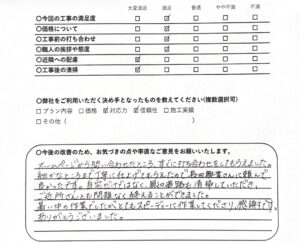 大変満足 満足 普通 やや不満 不満
○今回の工事の満足度 □ ☑ □ □ □
○価格について □ ☑ □ □ □
○工事前の打ち合わせ □ ☑ □ □ □
○職人の挨拶や態度 □ ☑ □ □ □
○近隣への配慮 ☑ □ □ □ □
○工事後の清掃 ☑ □ □ □ □
○弊社をご利用いただく決め手となったものを教えてください(複数選択可)
□ プラン内容 □ 価格 ☑ 対応力 ☑ 信頼性 □ 施工実績
□ その他(
○今後の改善のため、お気づきの点や率直なご意見をお願いいたします。
ホームページから問い合わせたところ、すぐに打ち合わせをしてもらえました。
細かなところまで丁寧に仕上げてもらえたので 長田興業さんに頼んで
良かったです。自宅だけではなく、周辺道路もお清掃していただき、
ご近所さんとも問題なく終えることができました。
暑い中の作業でしたがとてもスピーディーに作業してくださり、感謝です。
ありがとうございました。